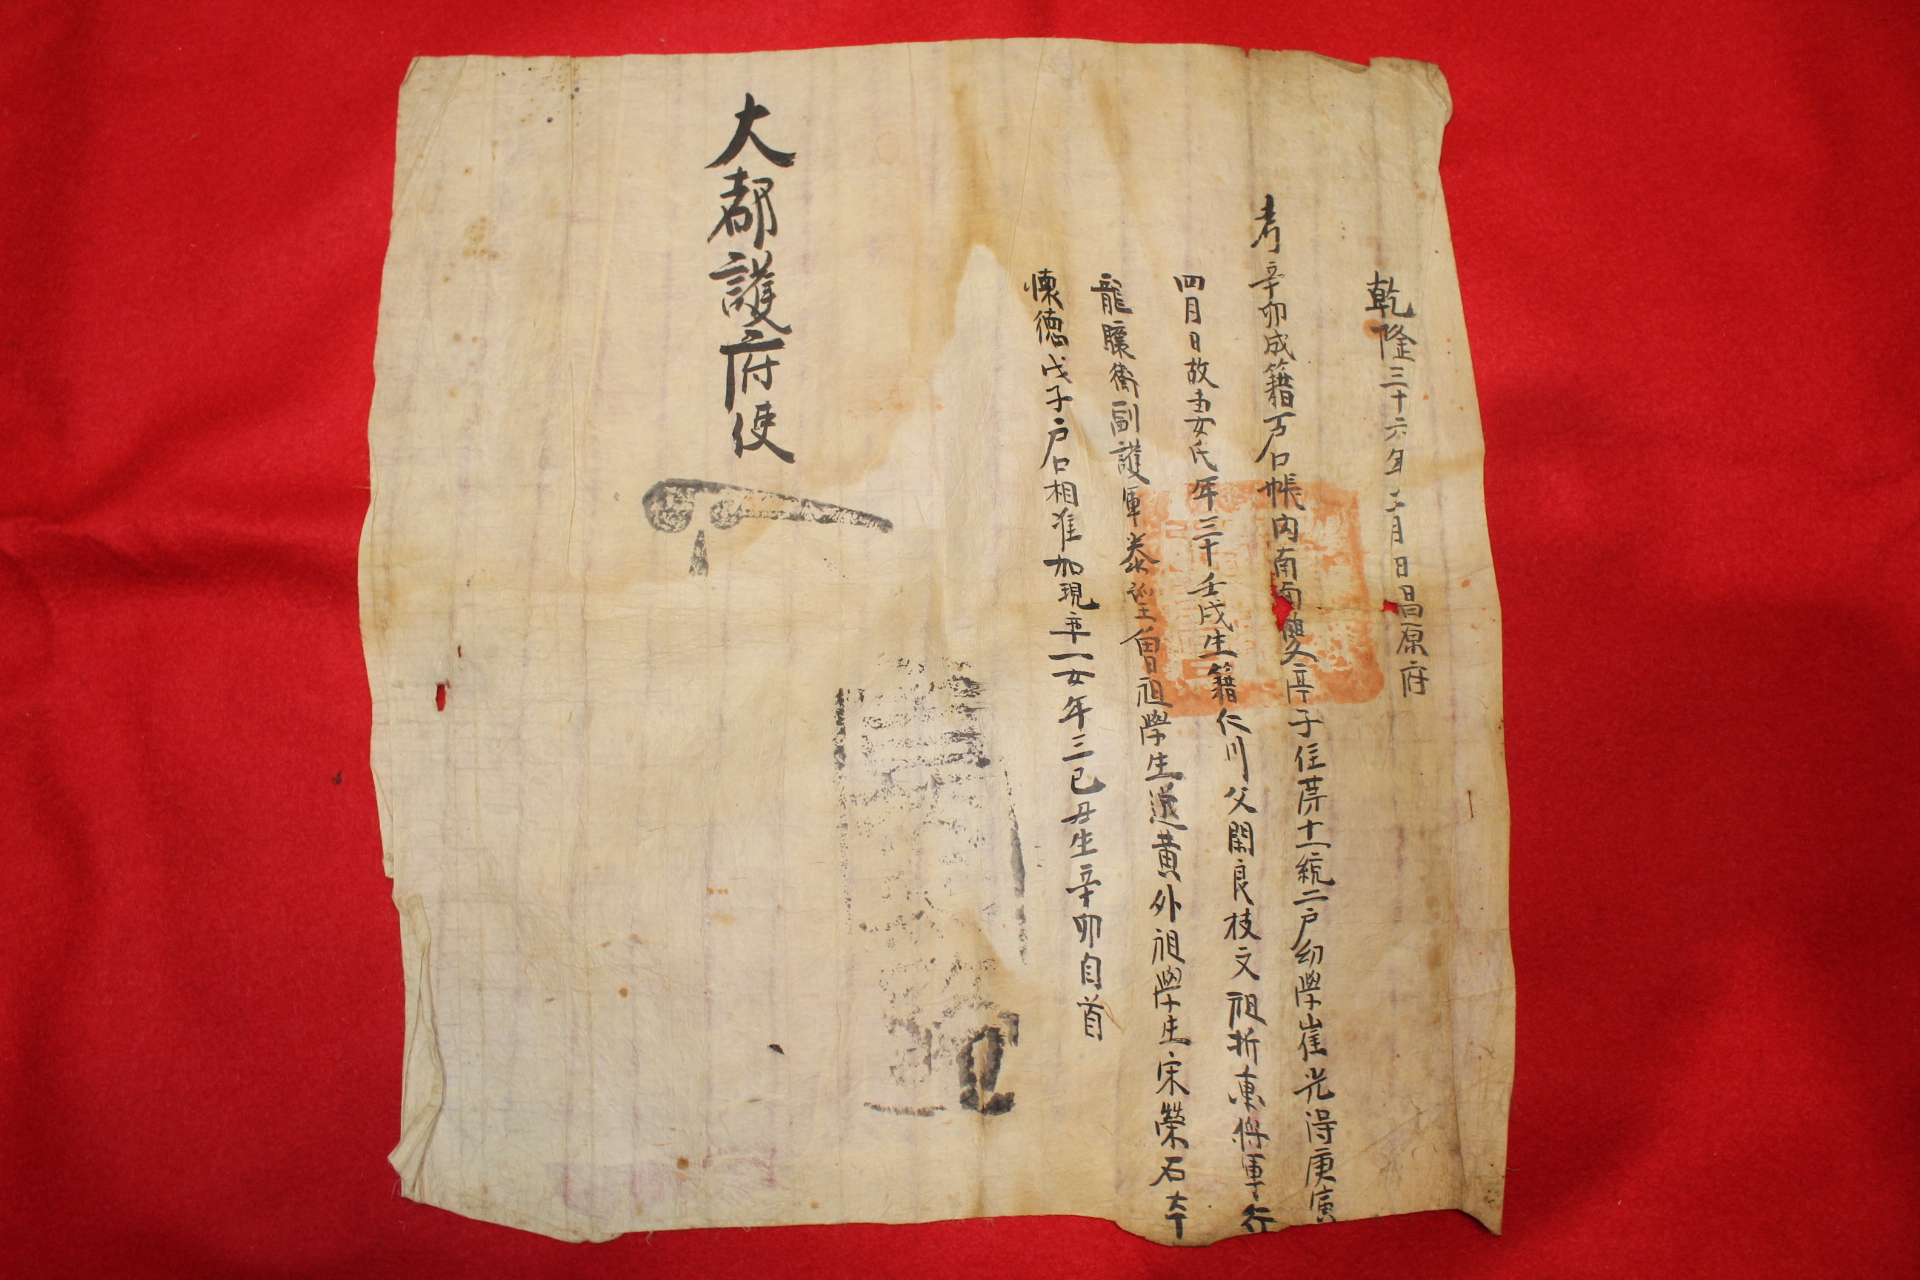 乾隆三十六年三月日昌原府
考辛卯成籍戶口帳內南面雙亭子住第十一統二戶幼學崔光得庚寅
四月日故妻女氏年三十壬戌生籍仁川父閑良枝文祖折衝將軍行
龍驤衛副護軍泰 曾祖學生 黃外祖學生宋榮石本
懷德戊子戶口相准加現率一女年三己丑生辛卯自首
大都護府使